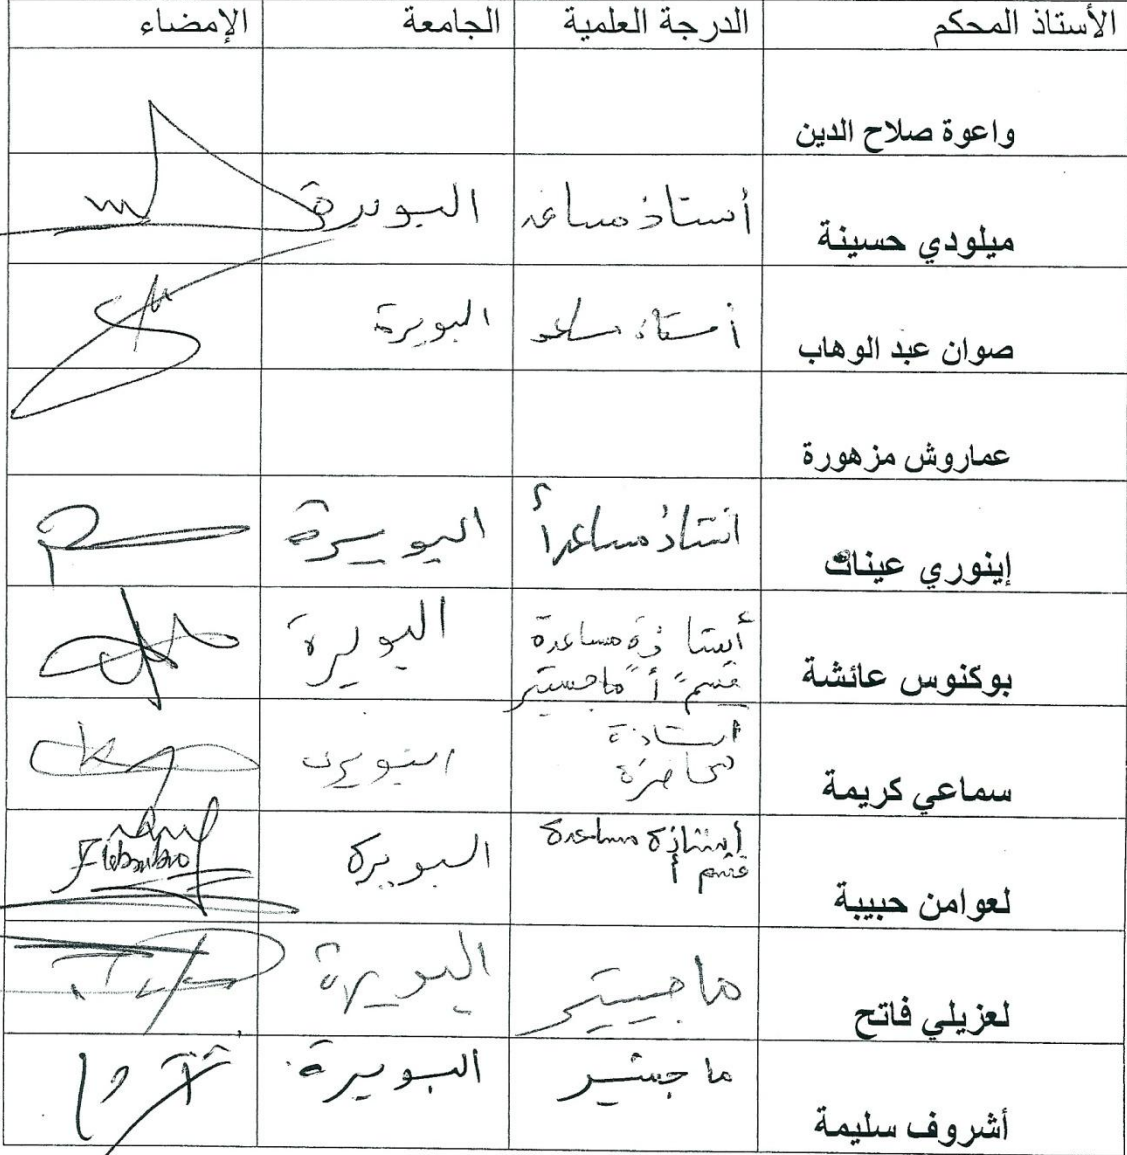 الأستاذ المحكم الدرجة العلمية الجامعة الإمضاء
واعوة صلاح الدين
ميلودي حسينة أستاذ مساعد البويرة
صوان عبد الوهاب أستاذ مساعد البويرة
عماروش مزهورة
إينوري عينات أستاذ مساعد أ البويرة
بوكنوس عائشة أستاذة مساعدة البويرة
قسم "أ" ماجستير
سماعي كريمة أستاذة البويرة
محاضرة
لعوامن حبيبة أستاذة مساعدة البويرة
قسم أ
لعزيلي فاتح ماجستير البويرة
أشروف سليمة ماجستير البويرة